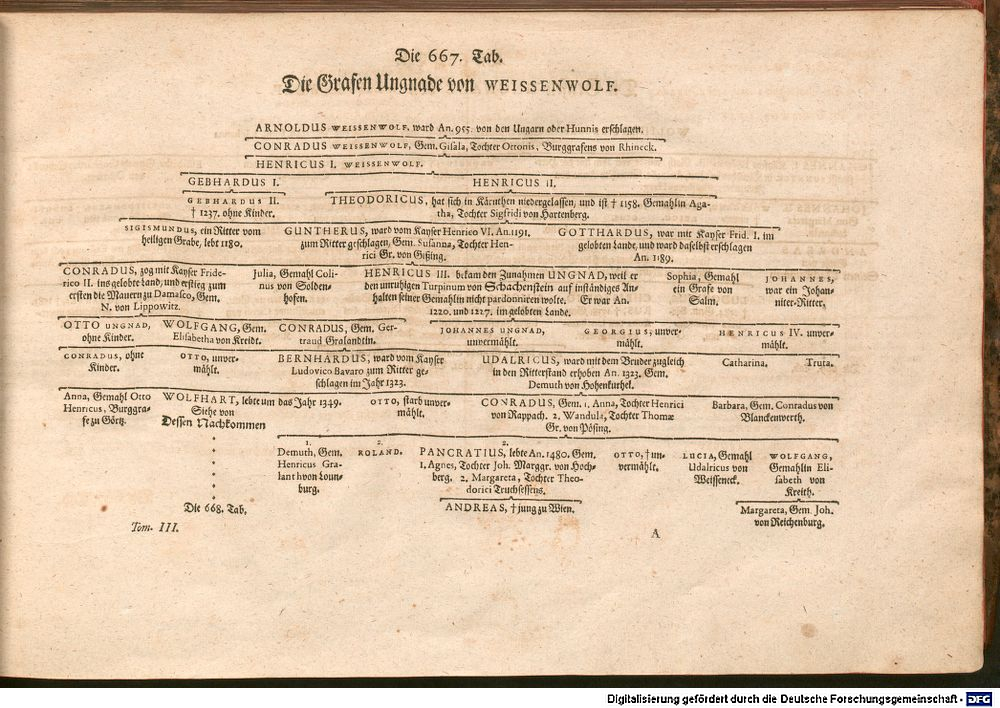 Die 667. Tab.
Die Grafen Ungnade von WEISSENWOLF.
ARNOLDUS WEISSENWOLF, ward An. 955. von den Ungarn oder Hunnis erschlagen.
CONRADUS WEISSENWOLF, Gem. Gisala, Tochter Ottonis, Burggrafens von Rhineck.
HENRICUS I. WEISSENWOLF.
GEBHARDUS I.
HENRICUS II.
GEBHARDUS II.
† 1237. ohne Kinder.
THEODORICUS, hat sich in Kärnthen niedergelassen, und ist † 1158. Gemahlin Aga-
tha, Tochter Sigfridi von Hartenberg.
SIGISMUNDUS, ein Ritter vom
heiligen Grabe, lebt 1180.
GUNTHERUS, ward vom Kayser Henrico VI. An. 1191.
zum Ritter geschlagen, Gem. Susanna, Tochter Hen-
rici Gr. von Gißing.
GOTTHARDUS, war mit Kayser Frid. I. im
gelobten Lande, und ward daselbst erschlagen
An. 1189.
CONRADUS, zog mit Kayser Fride-
rico II. ins gelobte Land, und erstieg zum
ersten die Mauern zu Damasco, Gem.
N. von Lippowitz.
Julia, Gemahl Coli-
nus von Solden-
hofen.
HENRICUS III. bekam den Zunahmen UNGNAD, weil er
den unruhigen Turpinum von Schachenstein auf inständiges An-
halten seiner Gemahlin nicht pardonniren wolte. Er war An.
1220. und 1227. im gelobten Lande.
Sophia, Gemahl
ein Grafe von
Salm.
JOHANNES,
war ein Johan-
niter-Ritter.
OTTO UNGNAD,
ohne Kinder.
WOLFGANG, Gem.
Elisabetha von Kreidt.
CONRADUS, Gem. Ger-
traud Gralandtin.
JOHANNES UNGNAD,
unvermählt.
GEORGIUS, unver-
mählt.
HENRICUS IV. unver-
mählt.
CONRADUS, ohne
Kinder.
OTTO, unver-
mählt.
BERNHARDUS, ward vom Kayser
Ludovico Bavaro zum Ritter ge-
schlagen im Jahr 1323.
UDALRICUS, ward mit dem Bruder zugleich
in den Ritterstand erhoben An. 1323. Gem.
Demuth von Hohenkirhel.
Catharina.
Truta.
Anna, Gemahl Otto
Henricus, Burggra-
fe zu Görtz.
WOLFHART, lebte um das Jahr 1349.
Siehe von
Dessen Nachkommen
OTTO, starb unver-
mählt.
CONRADUS, Gem. 1. Anna, Tochter Henrici
von Rappach. 2. Wandula, Tochter Thomæ
Gr. von Pösing.
Barbara, Gem. Conradus von
Blanckenwerth.
1.
Demuth, Gem.
Henricus Gra-
lant von Loun-
burg.
2.
ROLAND.
2.
PANCRATIUS, lebte An. 1480. Gem.
1. Agnes, Tochter Joh. Marggr. von Hoch-
berg. 2. Margareta, Tochter Theo-
dorici Truchsessens.
OTTO, † un-
vermählt.
LUCIA, Gemahl
Udalricus von
Weisseneck.
WOLFGANG,
Gemahlin Eli-
sabeth von
Kreith.
Die 668. Tab.
ANDREAS, † jung zu Wien.
Margareta, Gem. Joh.
von Reichenburg.
Tom. III.
A
Digitalisierung gefördert durch die Deutsche Forschungsgemeinschaft - DFG